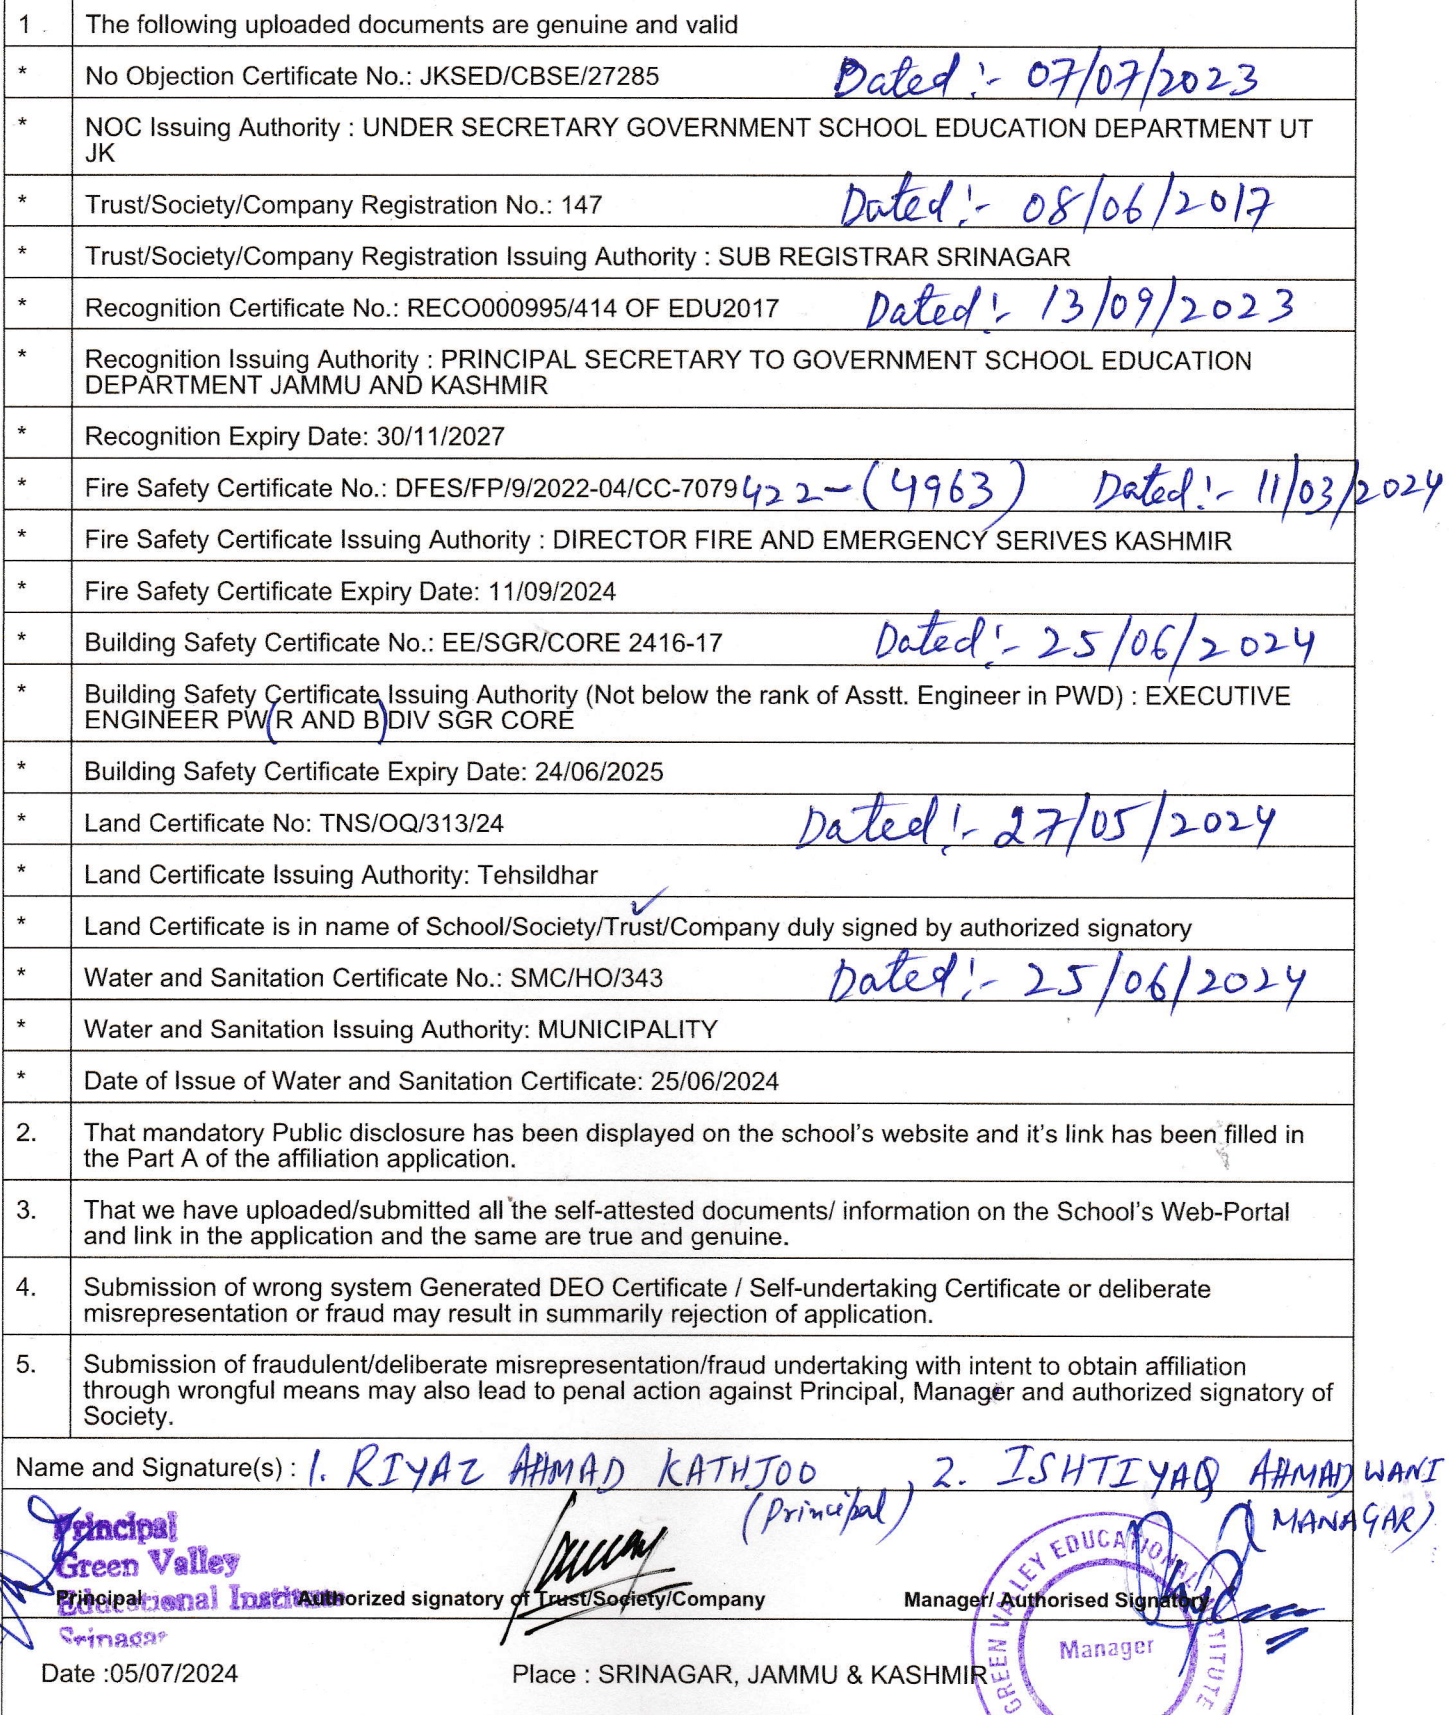 1 . The following uploaded documents are genuine and valid
* No Objection Certificate No.: JKSED/CBSE/27285 Dated :- 07/07/2023
* NOC Issuing Authority : UNDER SECRETARY GOVERNMENT SCHOOL EDUCATION DEPARTMENT UT
JK
* Trust/Society/Company Registration No.: 147 Dated :- 08/06/2017
* Trust/Society/Company Registration Issuing Authority : SUB REGISTRAR SRINAGAR
* Recognition Certificate No.: RECO000995/414 OF EDU2017 Dated :- 13/09/2023
* Recognition Issuing Authority : PRINCIPAL SECRETARY TO GOVERNMENT SCHOOL EDUCATION
DEPARTMENT JAMMU AND KASHMIR
* Recognition Expiry Date: 30/11/2027
* Fire Safety Certificate No.: DFES/FP/9/2022-04/CC-7079422-(4963) Dated :- 11/03/2024
* Fire Safety Certificate Issuing Authority : DIRECTOR FIRE AND EMERGENCY SERIVES KASHMIR
* Fire Safety Certificate Expiry Date: 11/09/2024
* Building Safety Certificate No.: EE/SGR/CORE 2416-17 Dated :- 25/06/2024
* Building Safety Certificate Issuing Authority (Not below the rank of Asstt. Engineer in PWD) : EXECUTIVE
ENGINEER PW(R AND B)DIV SGR CORE
* Building Safety Certificate Expiry Date: 24/06/2025
* Land Certificate No: TNS/OQ/313/24 Dated :- 27/05/2024
* Land Certificate Issuing Authority: Tehsildhar
* Land Certificate is in name of School/Society/Trust/Company duly signed by authorized signatory
* Water and Sanitation Certificate No.: SMC/HO/343 Dated :- 25/06/2024
* Water and Sanitation Issuing Authority: MUNICIPALITY
* Date of Issue of Water and Sanitation Certificate: 25/06/2024
2. That mandatory Public disclosure has been displayed on the school's website and it's link has been filled in
the Part A of the affiliation application.
3. That we have uploaded/submitted all the self-attested documents/ information on the School's Web-Portal
and link in the application and the same are true and genuine.
4. Submission of wrong system Generated DEO Certificate / Self-undertaking Certificate or deliberate
misrepresentation or fraud may result in summarily rejection of application.
5. Submission of fraudulent/deliberate misrepresentation/fraud undertaking with intent to obtain affiliation
through wrongful means may also lead to penal action against Principal, Manager and authorized signatory of
Society.
Name and Signature(s) : 1. RIYAZ AHMAD KATHJOO , 2. ISHTIYAQ AHMAD WANI
(Principal) MANAGAR)
Principal
Green Valley
Educational Institute
Srinagar
Principal Authorized signatory of Trust/Society/Company Manager/ Authorised Signatory
GREEN VALLEY EDUCATIONAL INSTITUTE
Manager
Date :05/07/2024 Place : SRINAGAR, JAMMU & KASHMIR